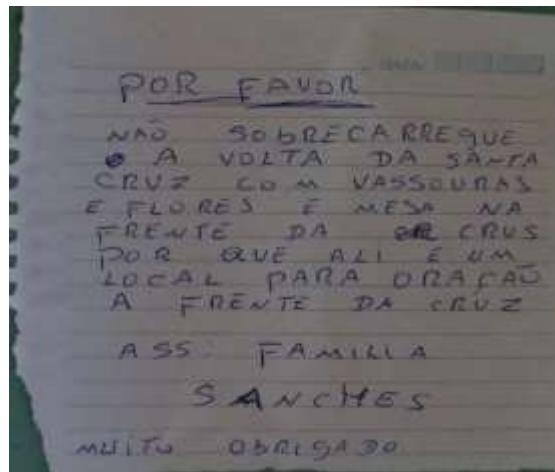 POR FAVOR
NÃO SOBRECARREGUE
A VOLTA DA SANTA
CRUZ COM VASSOURAS
E FLORES E MESA NA
FRENTE DA CRUS
POR QUE ALI É UM
LOCAL PARA ORAÇÃO
A FRENTE DA CRUZ
ASS: FAMILIA
SANCHES
MUITO OBRIGADO